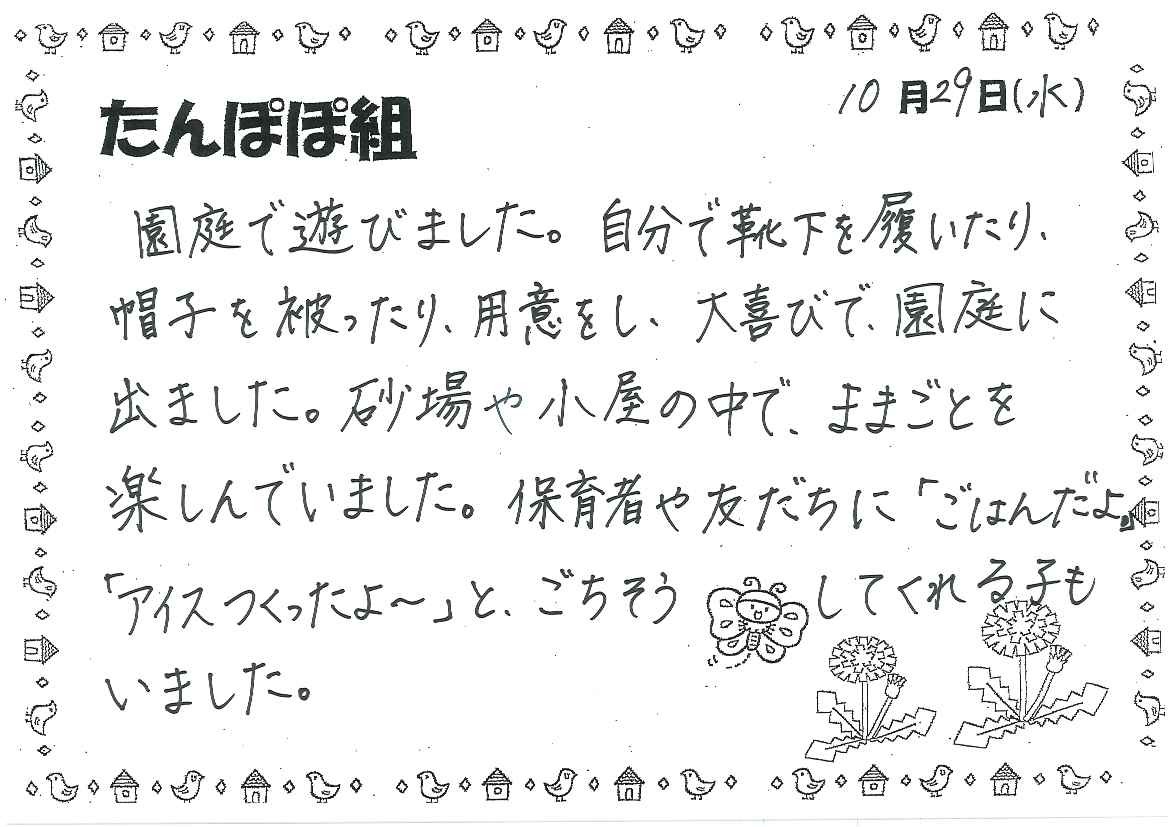 10月29日(水)
たんぽぽ組
園庭で遊びました。自分で靴下を履いたり、
帽子を被ったり、用意をし、大喜びで、園庭に
出ました。砂場や小屋の中で、ままごとを
楽しんでいました。保育者や友だちに「ごはんだよ。」
「アイスつくったよ〜」と、ごちそうしてくれる子も
いました。